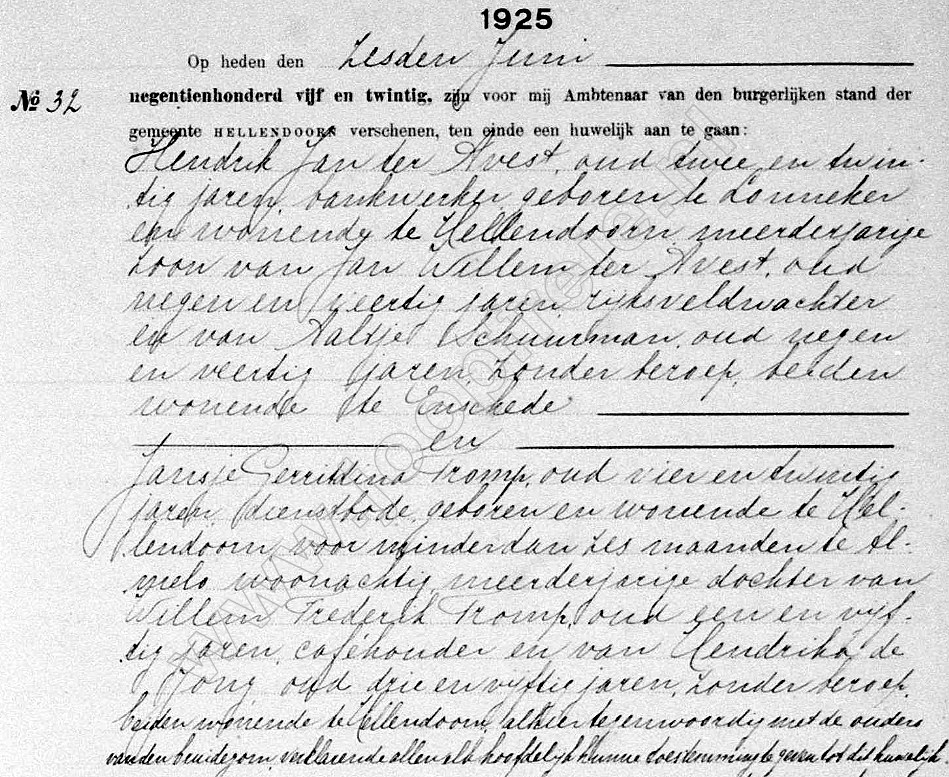 1925
Op heden den Zesden Juni
No 32 negentienhonderd vijf en twintig, zijn voor mij Ambtenaar van den burgerlijken stand der
gemeente HELLENDOORN verschenen, ten einde een huwelijk aan te gaan:
Hendrik Jan ter Avest, oud twee en twin-
tig jaren, bankwerker, geboren te Lonneker
en wonende te Hellendoorn, meerderjarige
zoon van Jan Willem ter Avest, oud
negen en veertig jaren, rijksveldwachter
en van Aaltje Schuurman, oud negen
en veertig jaren, zonder beroep, beiden
wonende te Enschede
en
Jansje Gerritdina Tromp, oud vier en twintig
jaren, dienstbode, geboren en wonende te Hel-
lendoorn, voor minder dan zes maanden te Al-
melo woonachtig, meerderjarige dochter van
Willem Frederik Tromp, oud een en vijf-
tig jaren, caféhouder en van Hendrika de
Jong oud drie en vijftig jaren, zonder beroep,
beiden wonende te Hellendoorn, alhier tegenwoordig met de ouders
van den bruidegom, verklarende allen als hoofdelijk hunne toestemming te geven tot dit huwelijk